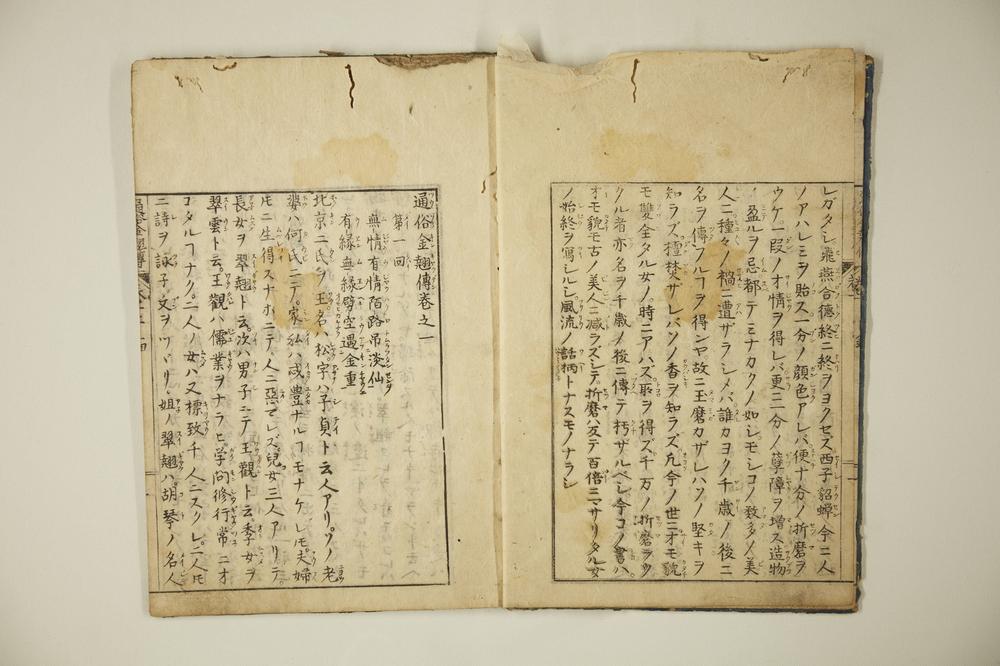 レガタシ飛燕合德終ニ終ヲヨクセズ西子貂蟬今ニ人
ノアハレミヲ貽ス一分ノ顔色アレバ便十分ノ折磨ヲ
ウケ一段ノオ情ヲ得レバ更ニ二分ノ孽障ヲ增ス造物
ノ盈ルヲ忌都テミナカクノ如シモシコノ数多ノ美
人ニ種々ノ禍ニ遭ザラシメバ誰カヨク千歳ノ後ニ
名ヲ傳フルヿヲ得ンヤ故ニ玉磨カザレハソノ堅キヲ
知ラズ檀焚ザレバソノ香ヲ知ラズ凡今ノ世ニオモ貌
モ雙全タル女ノ時ニアハズ死ヲ得ズ千万ノ折磨ヲウ
クル者亦名ヲ千歳ノ後ニ傳テ朽ザルベシ今コノ書ハ
オモ貌モ古ノ美人ニ减ラズシテ折磨ハ反テ百倍ニマサリタル女
ノ始終ヲ寫シルシ風流ノ話柄トナスモノナラシ
通俗金翹傳卷之一
第一回
無情有情陌路吊淡仙
有縁無縁劈空遇金重
北京ニ氏ヲ王名ハ松字ハ子貞ト云人アリ。ソノ老
妻ハ何氏ニテ。家私ハ咸豊ナルヿモナケレ𪜈夫婦
𪜈ニ生得スナホニテ。人ニ惡マレズ兒女三人アリテ。
長女ヲ翠翹ト云次ハ男子ニテ王觀ト云季女ヲ
翠雲ト云。王觀ハ儒業ヲナラヒ。学問修行常ニオ
コタルヿナク。二人ノ女ハ又標致千人ニスクレ。二人𪜈
ニ詩ヲ詠シ文ヲツヾリ姐ノ翠翹ハ胡琴ノ名人